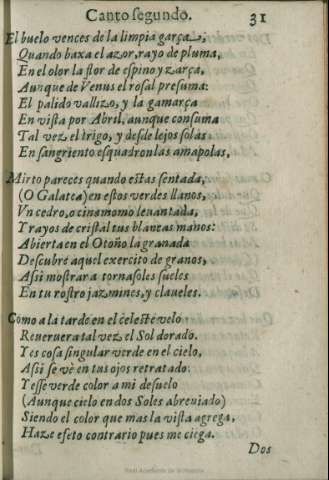 Canto segundo. 31
El buelo vences de la limpia garça,
Quando baxa el açor, rayo de pluma,
En el olor la flor de espino y zarça,
Aunque de Venus el rosal presuma:
El palido vallizo, y la gamarça
En vista por Abril, aunque consuma
Tal vez el trigo, y desde lejos solas
En sangriento esquadron las amapolas,
Mirto pareces quando estas sentada,
(O Galatea) en estos verdes llanos,
Vn cedro, o cinamomo leuantada,
Y rayos de cristal tus blancas manos:
Abierta en el Otoño la granada
Descubre aquel exercito de granos,
Assi mostrar a tornasoles sueles
En tu rostro jazmines, y claueles.
Como a la tarde en el celeste velo
Reuerue ra tal vez el Sol dorado.
Y es cosa singular verde en el cielo,
Assi se vè en tus ojos retratado:
Y esse verde color a mi desuelo
(Aunque cielo en dos Soles abreuiado)
Siendo el color que mas la vista agrega,
Haze efeto contrario pues me ciega.
Dos
Real Academia de la Historia